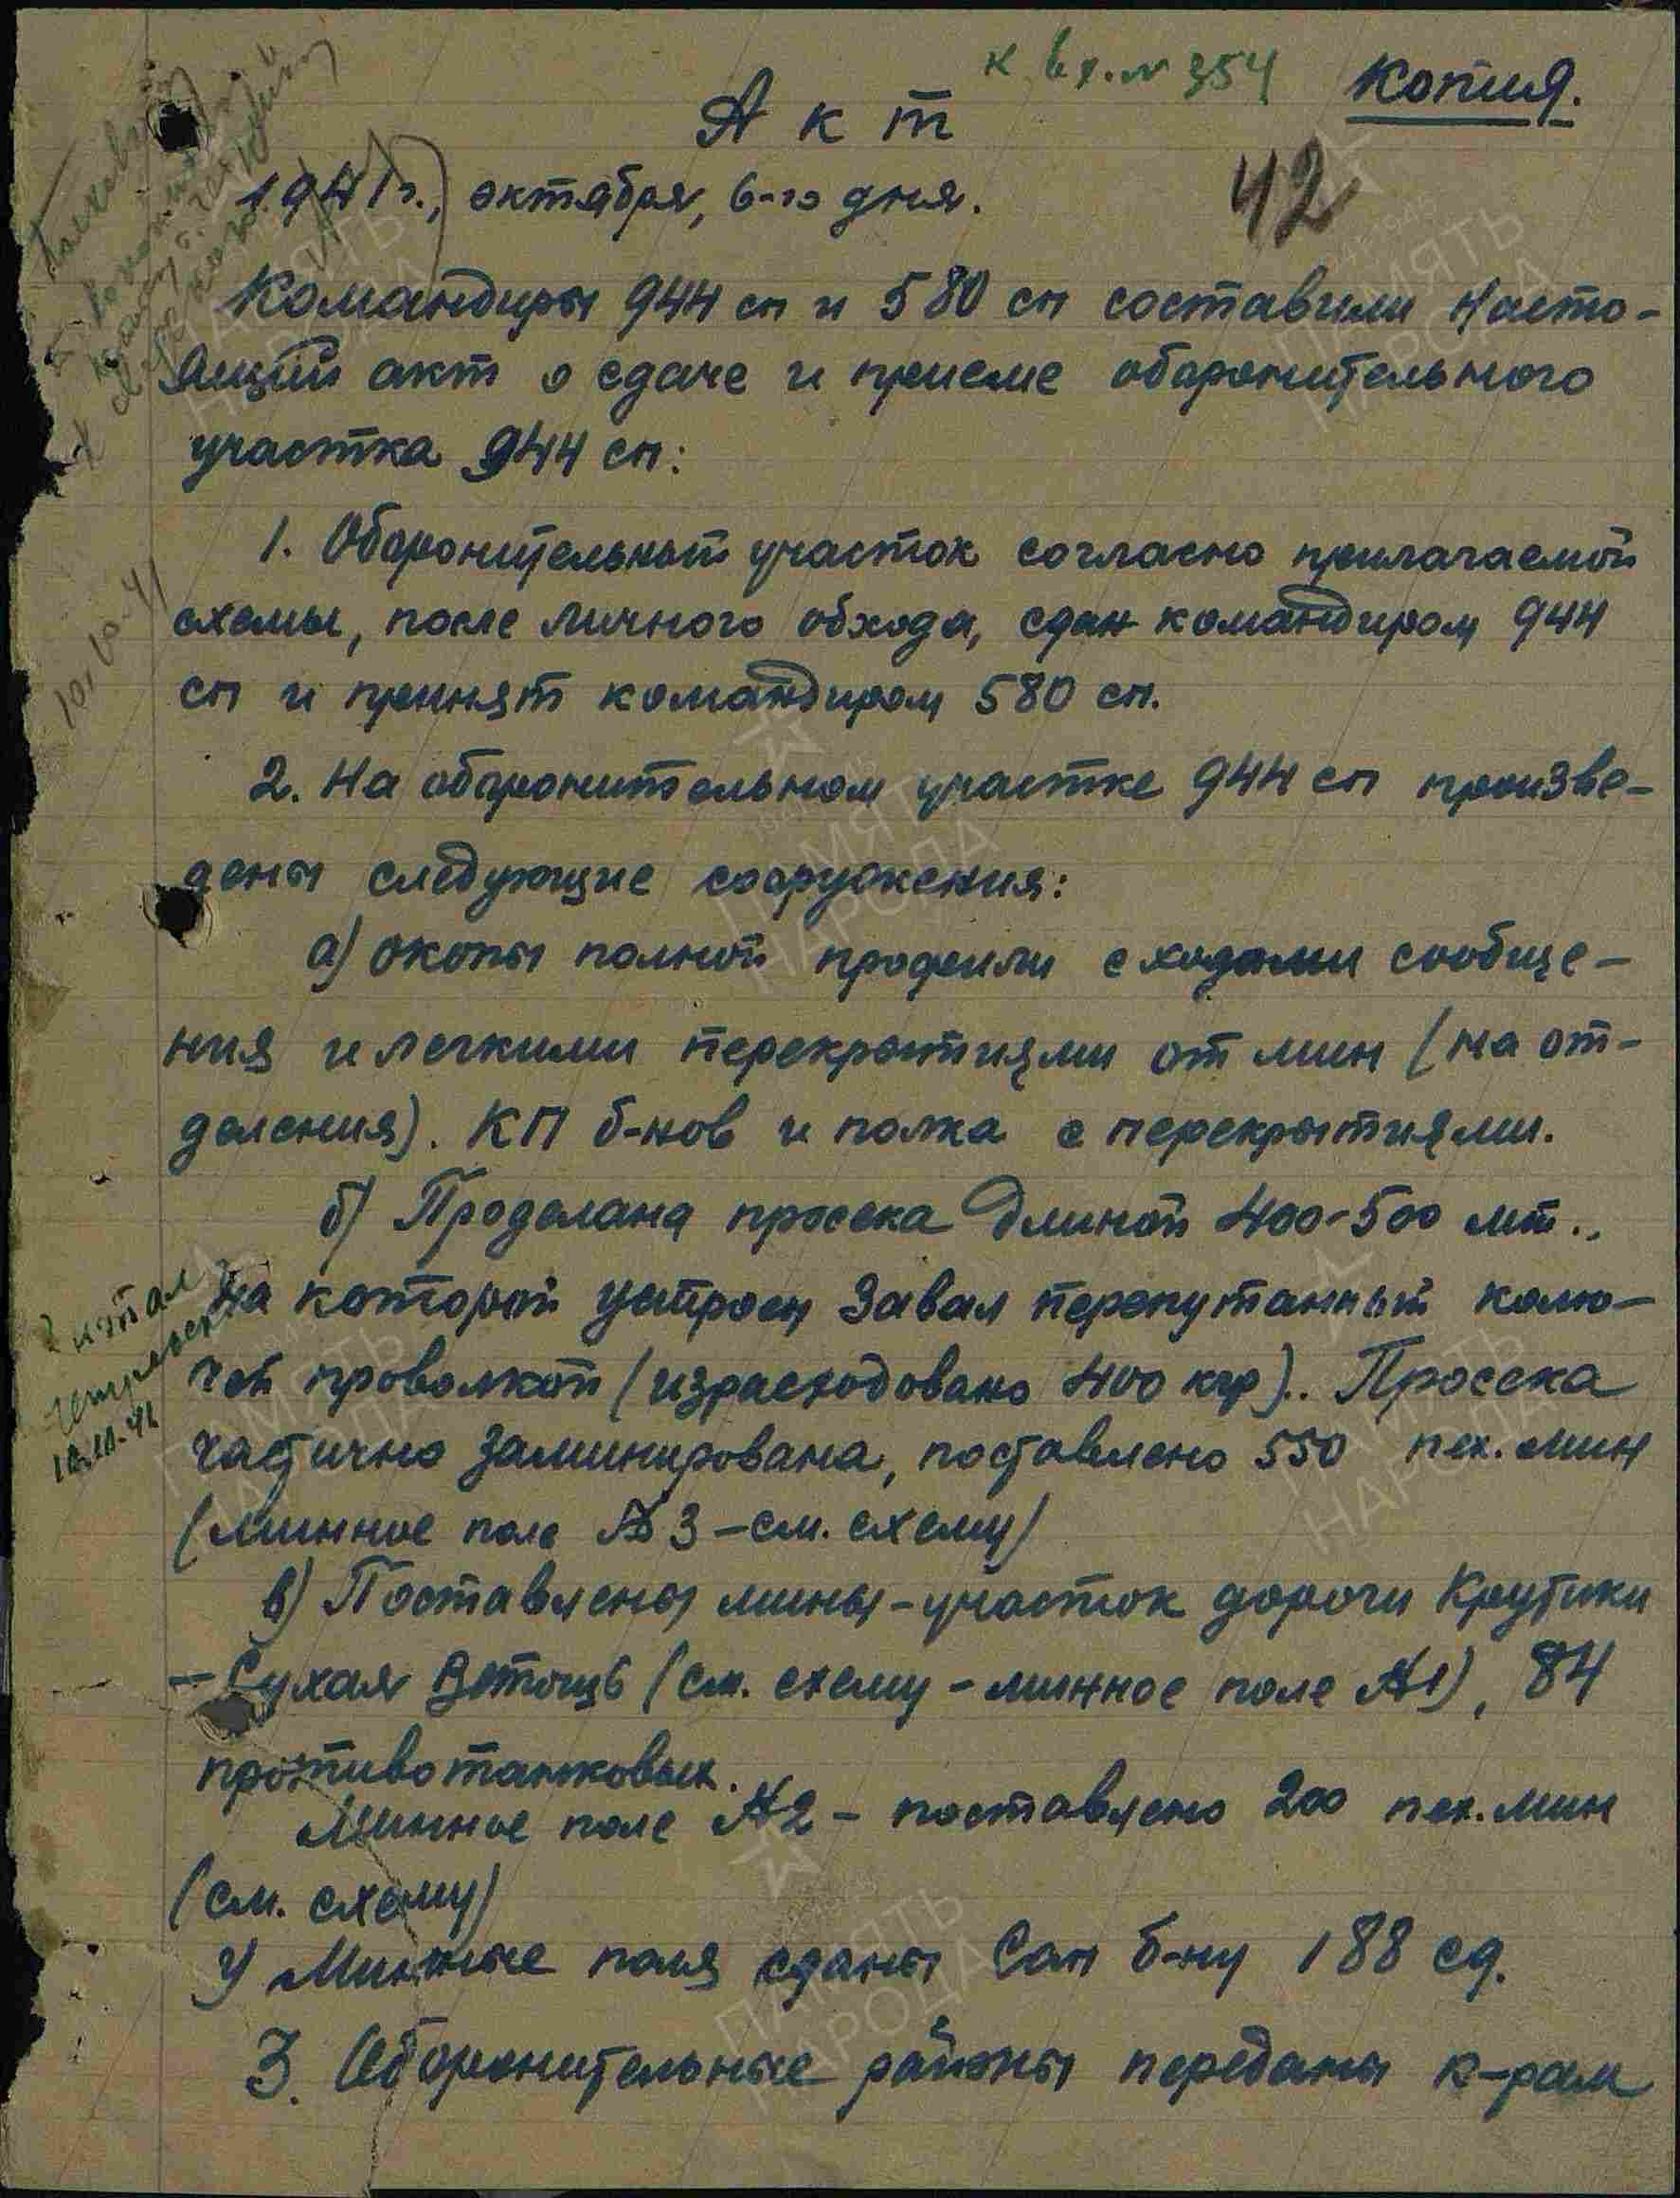 к вх. № 354
Копия.
Акт
42
1941 г., октября, 6-го дня.
Командиры 944 сп и 580 сп составили насто-
ящий акт о сдаче и приеме оборонительного
участка 944 сп:
1. Оборонительный участок согласно прилагаемой
схемы, после личного обхода, сдан командиром 944
сп и принят командиром 580 сп.
10.10.41
2. На оборонительном участке 944 сп произве-
дены следующие сооружения:
а) окопы полной профили с ходами сообще-
ния и легкими перекрытиями от мин (на от-
деления). КП б-нов и полка с перекрытиями.
б) Проделана просека длиной 400-500 мт.,
на которой устроен завал перепутанный колю-
чей проволкой (израсходовано 400 кгр).. Просека
частично заминирована, поставлено 550 пех. мин
(минное поле № 3 – см. схему)
Читал
10.10.41
в) Поставлены мины – участок дороги Крутики
– Сухая Ветошь (см. схему – минное поле №1), 84
противотанковых.
Минное поле №2 – поставлено 200 пех. мин
(см. схему)
у) Минные поля сданы Сап б-ну 188 сд.
3. Оборонительные районы переданы к-рам
ПАМЯТЬ
НАРОДА